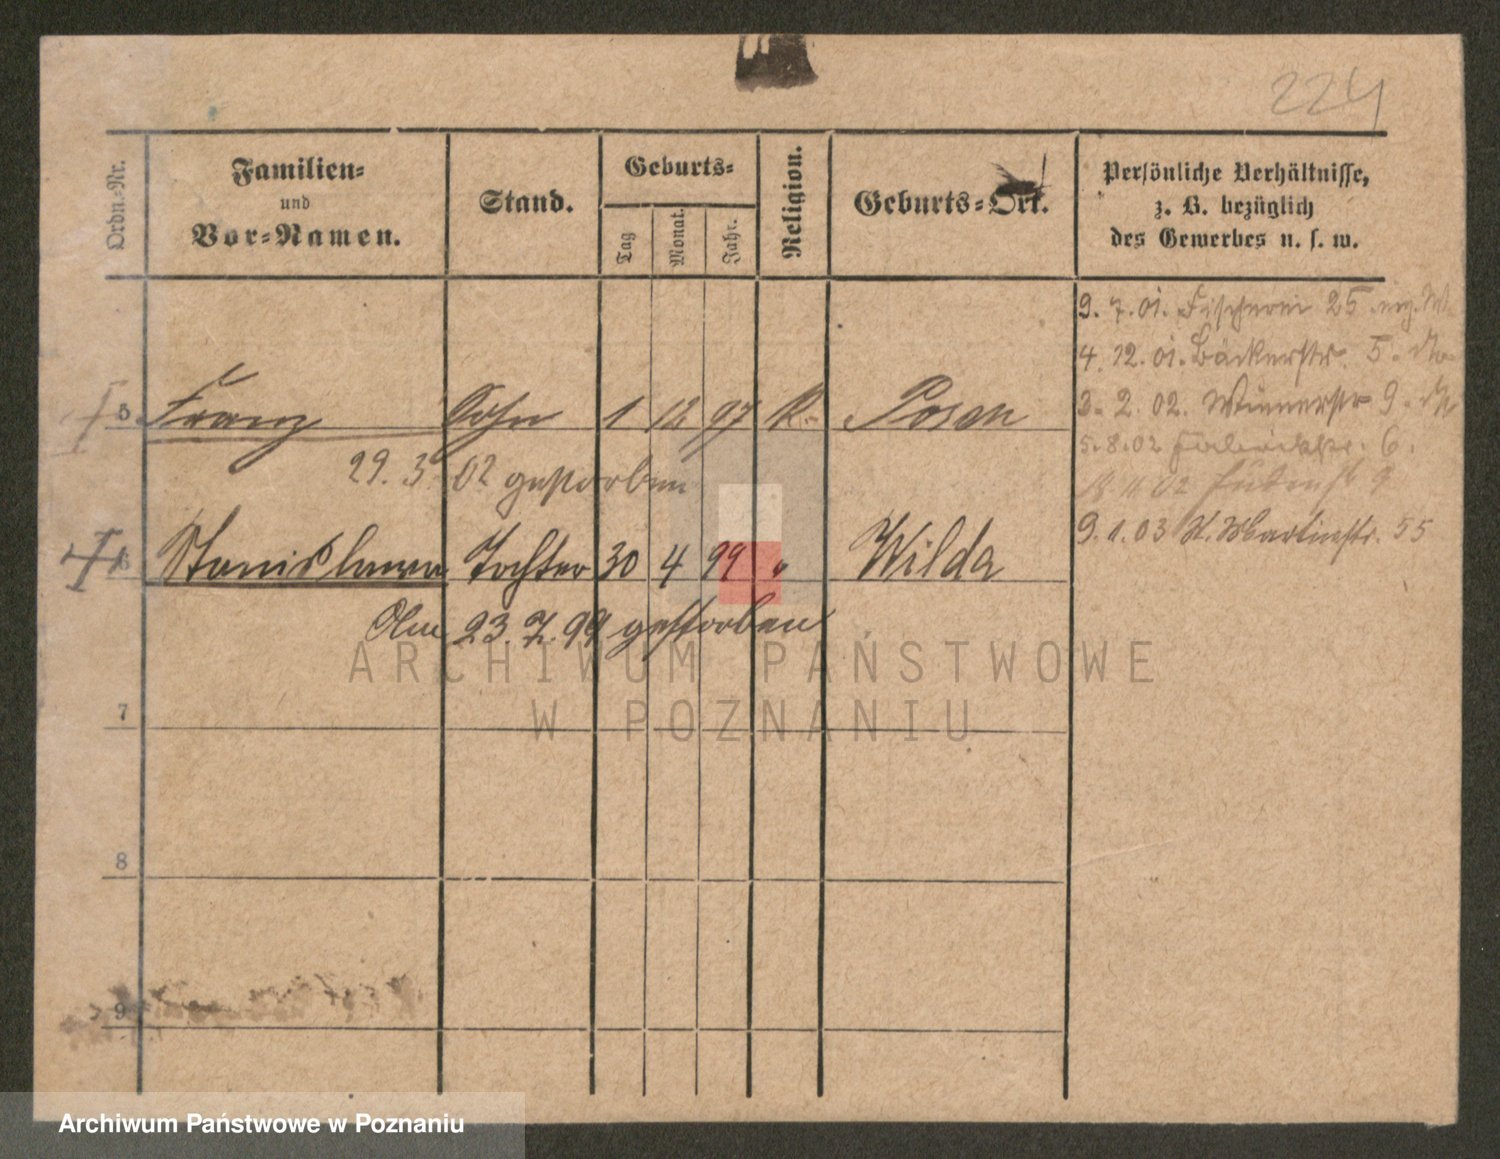 224
Ordn.-Nr.
Familien-
und
Vor-Namen.
Stand.
Geburts-
Tag
Monat.
Jahr.
Religion.
Geburts-Ort.
Persönliche Verhältnisse,
z. B. bezüglich
des Gewerbes u. s. w.
9. 7. 01. Fischerei 25
4. 12. 01. Bäckerstr. 5.
3. 2. 02. Wienerstr 9.
5 Franz Sohn 1 12 97 K. Posen
5. 8. 02 6.
29. 3. 02 gestorben
18. 11. 02 9
9. 1. 03 St. Martinstr. 55
6 Stanislawa Tochter 30 4 99 " Wilda
Am 23. 7. 99 gestorben
ARCHIWUM PAŃSTWOWE
W POZNANIU
7
8
9
Archiwum Państwowe w Poznaniu